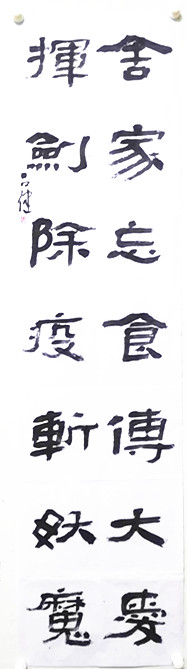 舍家忘食傳大愛
揮劍除疫斬妖魔